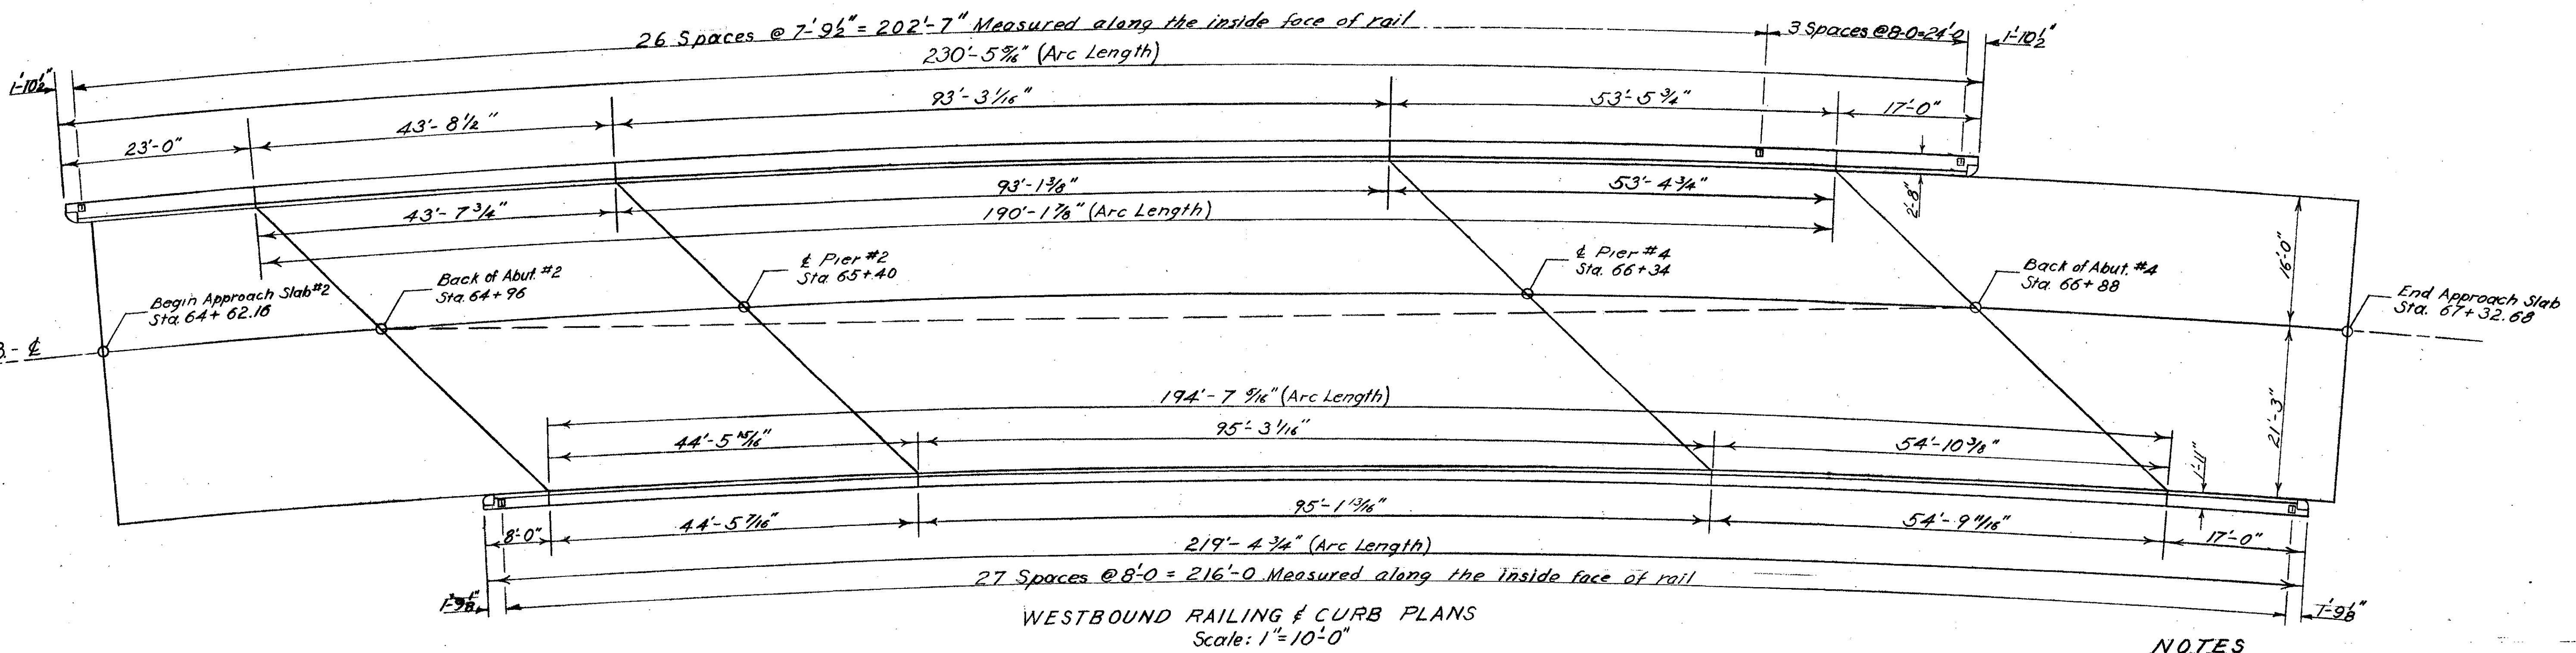 26 Spaces @ 7'-9½" = 202'-7" Measured along the inside face of rail
3 Spaces @8-0=24'-0
1'-10½"
1'-10½"
230'-5 5/16" (Arc Length)
93'-3 1/16"
53'-5 3/4"
17'-0"
43'-8 1/2"
23'-0"
93'-1 3/8"
53'-4 3/4"
43'-7 3/4"
190'-1 7/8" (Arc Length)
2'-8"
16'-0"
Begin Approach Slab #2
Sta. 64+62.16
Back of Abut. #2
Sta. 64+96
℄ Pier #2
Sta. 65+40
℄ Pier #4
Sta. 66+34
Back of Abut. #4
Sta. 66+88
End Approach Slab
Sta. 67+32.68
B.- ℄
194'-7 5/16" (Arc Length)
44'-5 15/16"
95'-3 1/16"
54'-10 3/8"
1'-11"
21'-3"
8'-0"
44'-5 7/16"
95'-1 13/16"
54'-9 11/16"
17'-0"
219'-4 3/4" (Arc Length)
27 Spaces @8'-0 = 216'-0 Measured along the inside face of rail
1'-9⅛"
1'-9⅛"
WESTBOUND RAILING & CURB PLANS
Scale: 1"=10'-0"
NOTES